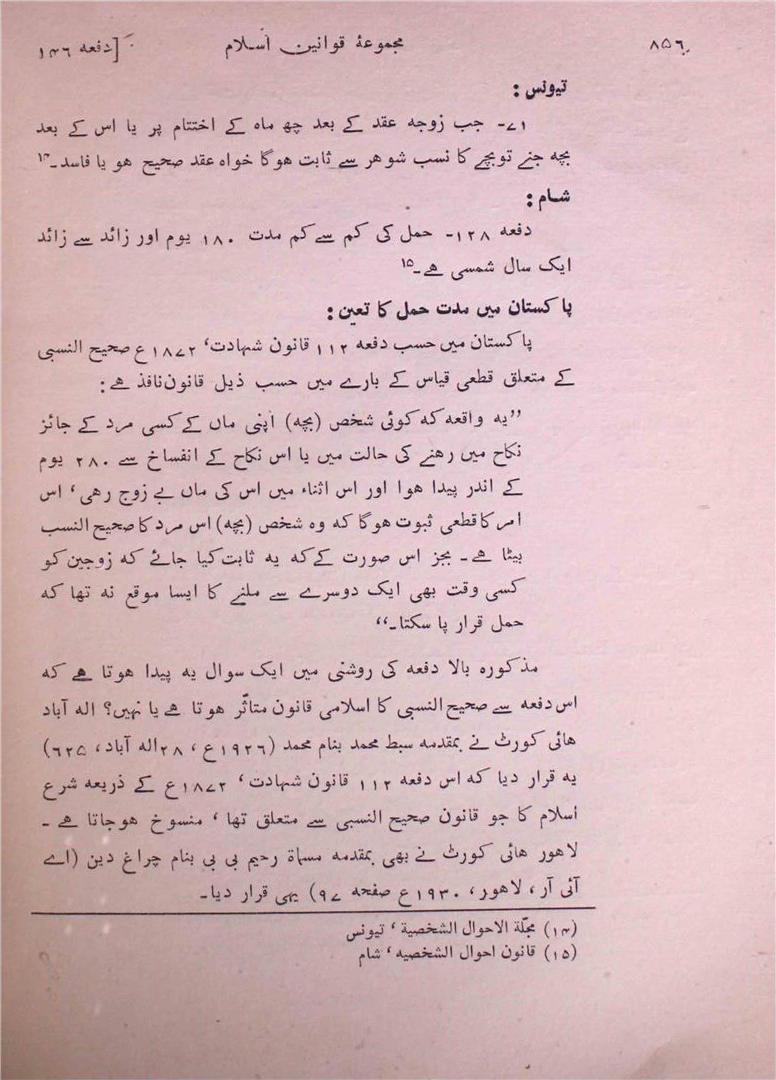 ۸۵۶ مجموعۂ قوانین اسلام [دفعہ ۱۴۶
تیونس :
۷۱۔ جب زوجہ عقد کے بعد چھ ماہ کے اختتام پر یا اس کے بعد
بچہ جنے تو بچے کا نسب شوہر سے ثابت ہوگا خواہ عقد صحیح ہو یا فاسد۔۱۴
شام :
دفعہ ۱۲۸۔ حمل کی کم سے کم مدت ۱۸۰ یوم اور زائد سے زائد
ایک سال شمسی ہے۔۱۵
پاکستان میں مدت حمل کا تعین :
پاکستان میں حسب دفعہ ۱۱۲ قانون شہادت، ۱۸۷۲ع صحیح النسبی
کے متعلق قطعی قیاس کے بارے میں حسب ذیل قانون نافذ ہے :
”یہ واقعہ کہ کوئی شخص (بچہ) اپنی ماں کے کسی مرد کے جائز
نکاح میں رہنے کی حالت میں یا اس نکاح کے انفساخ سے ۲۸۰ یوم
کے اندر پیدا ہوا اور اس اثناء میں اس کی ماں بے زوج رہی، اس
امر کا قطعی ثبوت ہوگا کہ وہ شخص (بچہ) اس مرد کا صحیح النسب
بیٹا ہے۔ بجز اس صورت کے کہ یہ ثابت کیا جائے کہ زوجین کو
کسی وقت بھی ایک دوسرے سے ملنے کا ایسا موقع نہ تھا کہ
حمل قرار پا سکتا۔“
مذکورہ بالا دفعہ کی روشنی میں ایک سوال یہ پیدا ہوتا ہے کہ
اس دفعہ سے صحیح النسبی کا اسلامی قانون متاثّر ہوتا ہے یا نہیں؟ الہ آباد
ہائی کورٹ نے بمقدمہ سبط محمد بنام محمد (۱۹۲۶ع، ۲۸ الہ آباد، ۶۲۵)
یہ قرار دیا کہ اس دفعہ ۱۱۲ قانون شہادت، ۱۸۷۲ع کے ذریعہ شرع
اسلام کا جو قانون صحیح النسبی سے متعلق تھا، منسوخ ہو جاتا ہے۔
لاہور ہائی کورٹ نے بھی بمقدمہ مسماۃ رحیم بی بی بنام چراغ دین (اے
آئی آر، لاہور، ۱۹۳۰ع صفحہ ۹۷) یہی قرار دیا۔
(۱۴) مجلّة الاحوال الشخصیة، تیونس
(۱۵) قانون احوال الشخصیہ، شام